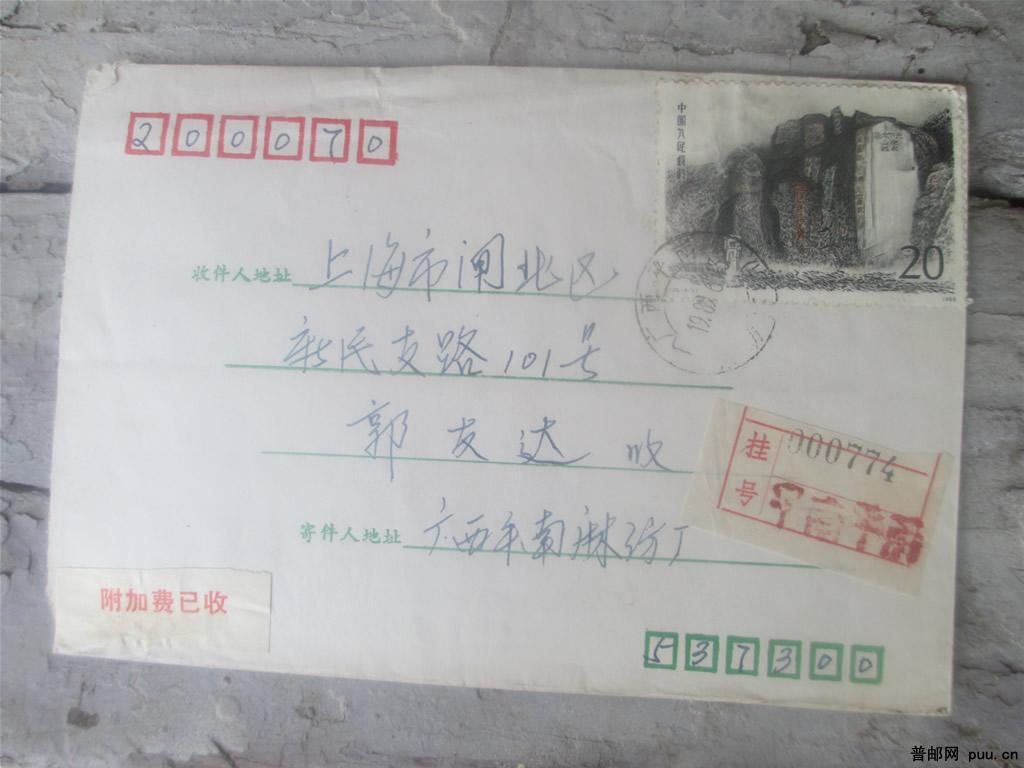 200070
中国人民邮政
20
收件人地址 上海市闸北区
新民支路101号
郭友达 收
挂号 000774
寄件人地址 广西平南麻纺厂
附加费已收
537300
普邮网 puu.cn